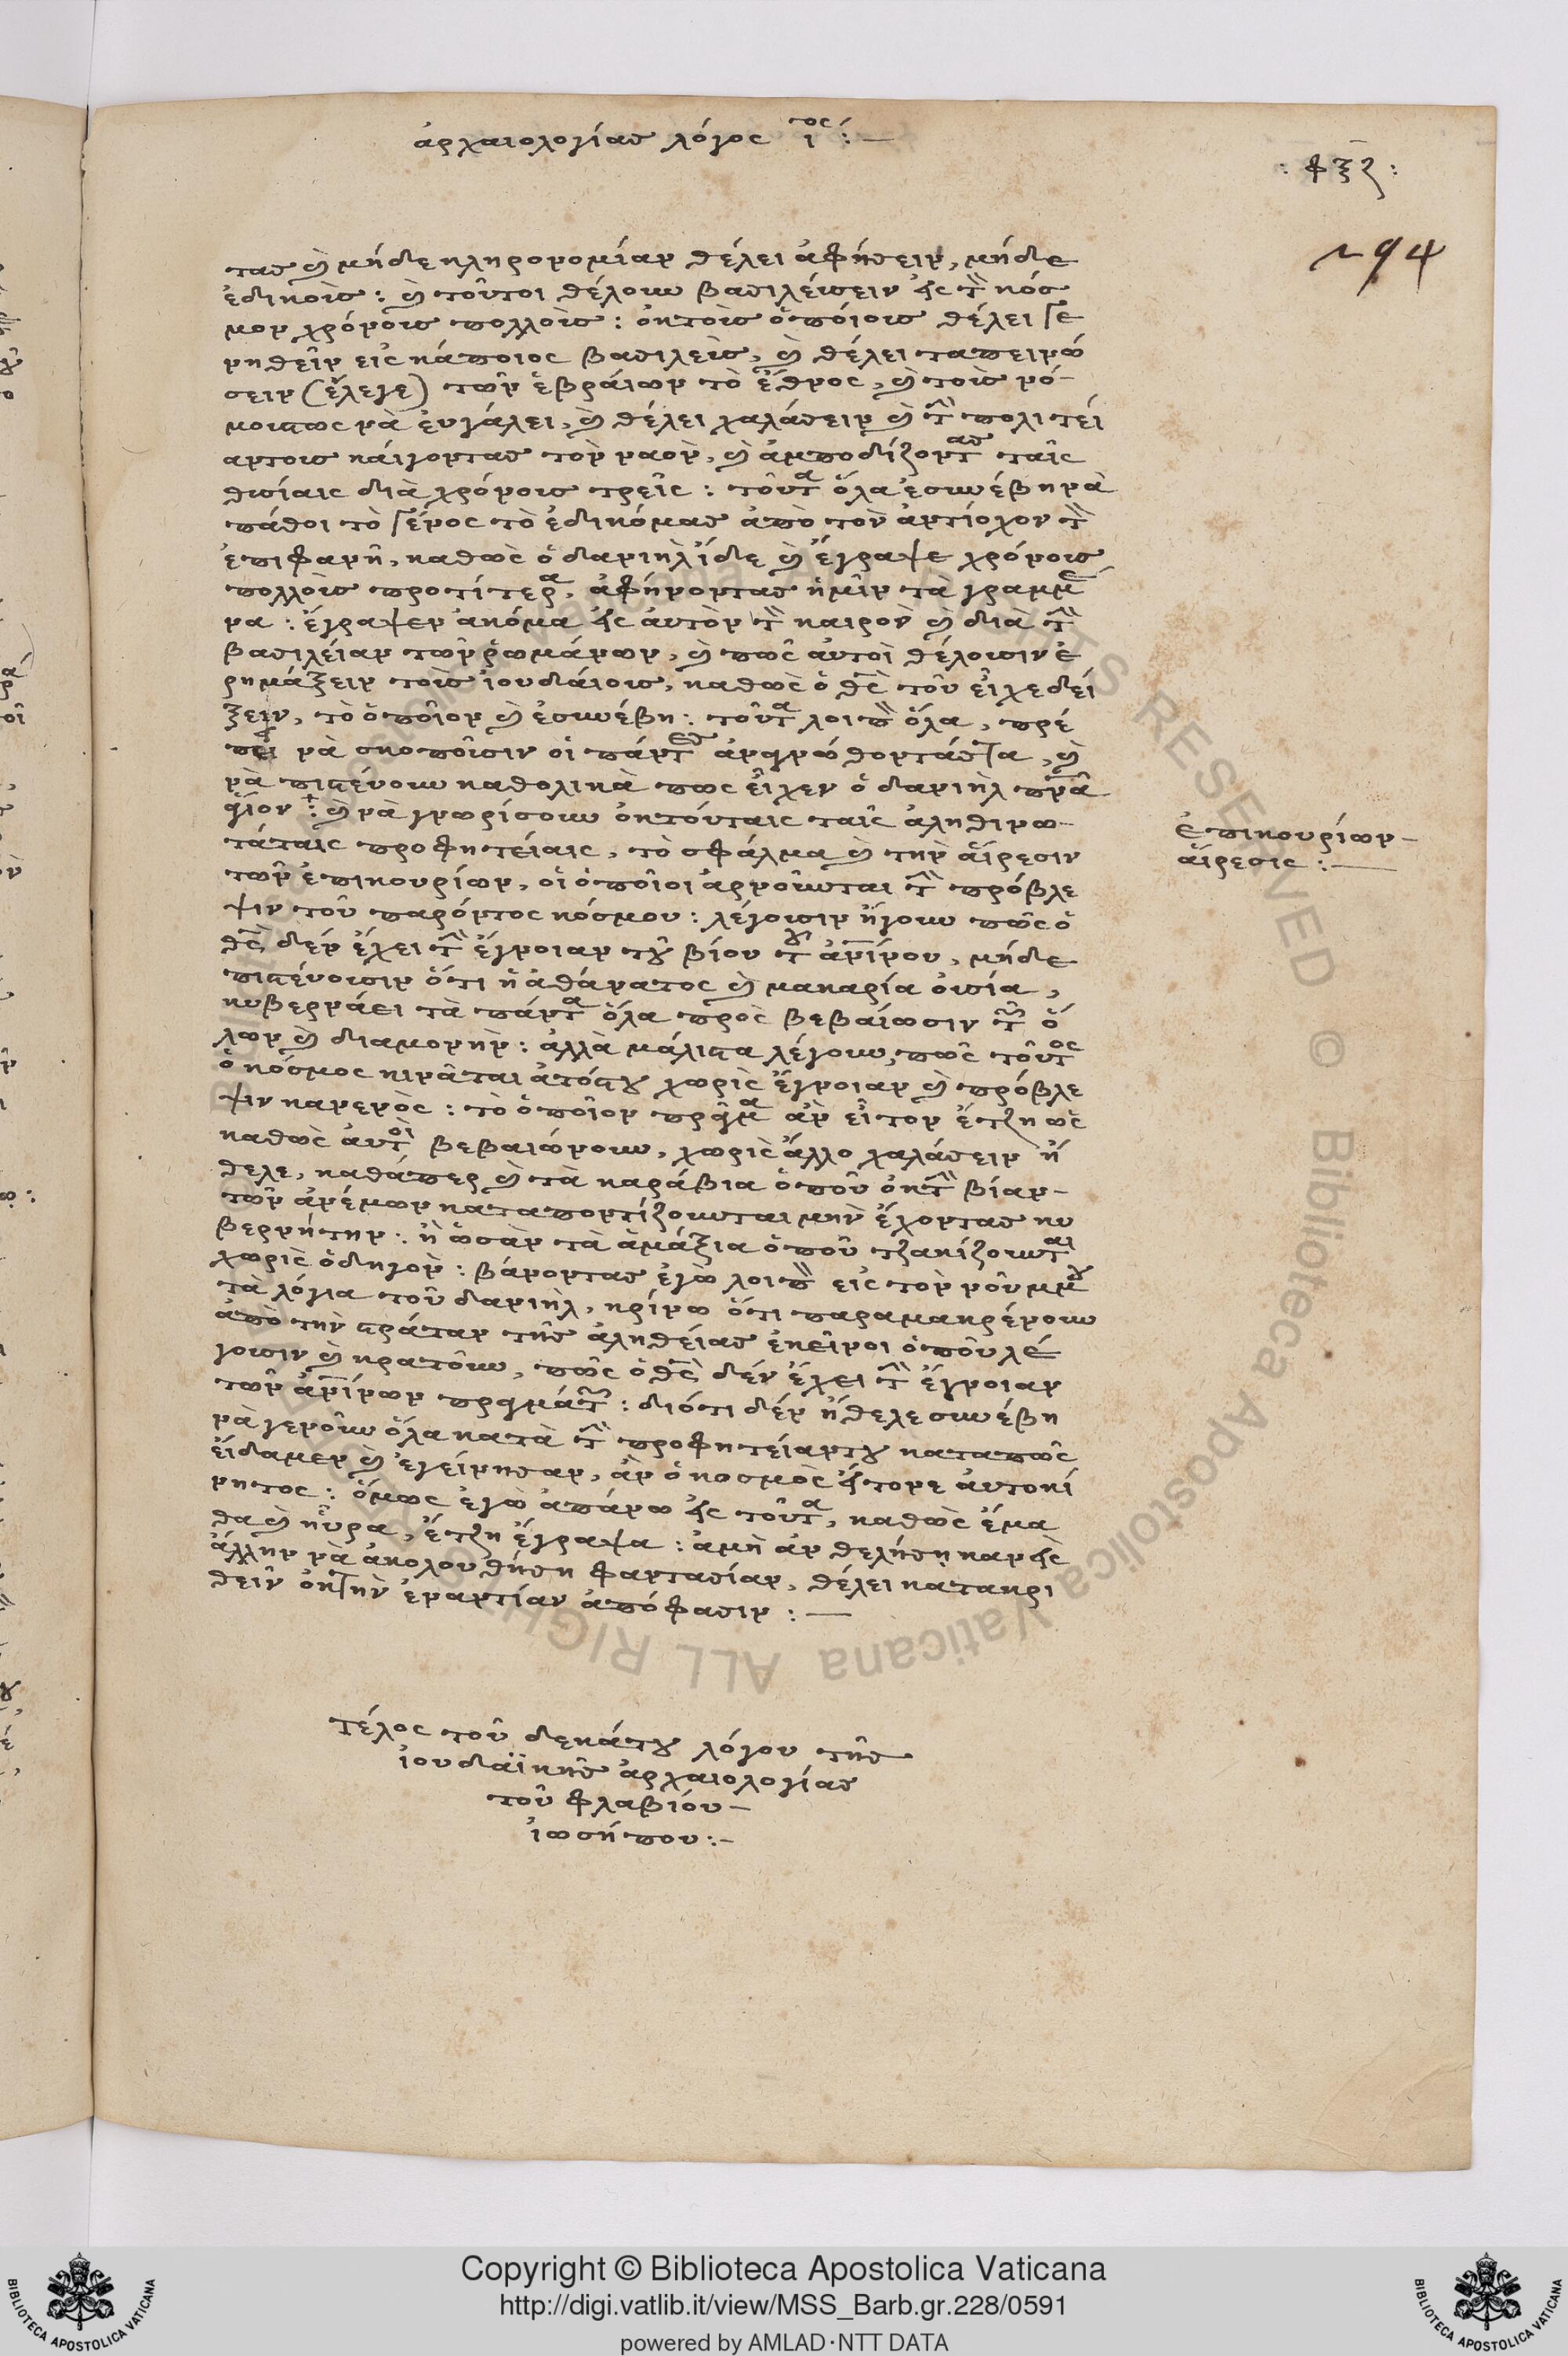 ἀρχαιολογίας λόγος ιος :—
: φξζ :
294
τας κὴ μήδε κληρονομίαν θέλει ἀφήσειν, μήδε
ἐδικοὺς : κὴ τοῦτοι θέλουν βασιλεύσειν εἰς τὸν κόσ
μον χρόνους πολλοὺς : ἐκ τοὺς ὁποίους θέλει γε
νηθεῖν εἰς κάποιος βασιλεὺς, κὴ θέλει ταπεινώ
σειν (ἔλεγε) τῶν ἑβραίων τὸ ἔθνος, κὴ τοὺς νό-
μους τως νὰ εὐγάλει, κὴ θέλει χαλάσειν κὴ τὴν πολιτεί
αν τους καίγοντας τὸν ναὸν, κὴ ἀμποδίζοντας ταῖς
θυσίαις διὰ χρόνους τρεῖς : τοῦτα ὅλα ἐσυνέβη νὰ
πάθοι τὸ γένος τὸ ἐδικόμας ἀπὸ τὸν ἀντίοχον τὸν
ἐπιφανῆ, καθὼς ὁ δανιὴλ ἴδε κὴ ἔγραψε χρόνους
πολλοὺς προτίτερα, ἀφήνοντας ἡμῖν τὰ γραμμέ
να : ἔγραψεν ἀκόμα εἰς αὐτὸν τὸν καιρὸν κὴ διὰ τὴν
βασιλείαν τῶν ῥωμάνων, κὴ πῶς αὐτοὶ θέλουσιν ἐ
ρημάξειν τοὺς ἰουδαίους, καθὼς ὁ θς τοῦ εἶχε δεί
ξειν, τὸ ὁποῖον κὴ ἐσυνέβη : τοῦτα λοιπὸν ὅλα, πρέ
πει νὰ σκοποῦσιν οἱ πάντες ἀναγνώθοντάς τα, κὴ
νὰ πιστεύουν καθολικὰ πως εἶχεν ὁ δανιὴλ πνα
ἅγιον : κὴ νὰ γνωρίσουν ἐκ τούταις ταῖς ἀληθινω-
τάταις προφητείαις, τὸ σφάλμα κὴ τὴν αἵρεσιν
τῶν ἐπικουρίων, οἱ ὁποῖοι ἀρνοῦνται τὴν πρόβλε
ψιν τοῦ παρόντος κόσμου : λέγουσιν ἤγουν πῶς ὁ
θς δὲν ἔχει τὴν ἔγνοιαν τοῦ βίου τοῦ ανινου, μήδε
πιστεύουσιν ὅτι ἡ ἀθάνατος κὴ μακαρία οὐσία,
κυβερνάει τὰ πάντα ὅλα πρὸς βεβαίωσιν τῶν ὅ
λων κὴ διαμονὴν : ἀλλὰ μάλιστα λέγουν, πῶς τοῦτος
ὁ κόσμος κινᾶται ἀτόςτου χωρὶς ἔγνοιαν κὴ πρόβλε
ψιν κανενὸς : τὸ ὁποῖον πρᾶγμα ἂν εἶτον ἔτζη ὡς
καθὼς αὐτοὶ βεβαιώνουν, χωρὶς ἄλλο χαλάσειν ἤ
θελε, καθάπερ κὴ τὰ καράβια ὁποῦ ἐκ τὴν βίαν-
τῶν ἀνέμων καταποντίζουνται μὴν ἔχοντας κυ
βερνήτην : ἢ ὡσὰν τὰ ἁμάξια ὁποῦ τζακίζουνται
χωρὶς ὁδηγὸν : βάνοντας ἐγὼ λοιπὸν εἰς τὸν νοῦν μου
τὰ λόγια τοῦ δανιὴλ, κρίνω ὅτι παραμακρένουν
ἀπὸ τὴν στράταν τῆς ἀληθείας ἐκεῖνοι ὁποῦ λέ
γουσιν κὴ κρατοῦν, πῶς ὁ θς δὲν ἔχει τὴν ἔγνοιαν
τῶν ανινων πραγμάτων : διότι δὲν ἤθελε συνέβη
νὰ γενοῦν ὅλα κατὰ τὴν προφητείαν του καταπῶς
εἴδαμεν κὴ ἐγείνησαν, ἂν ὁ κοσμὸς ἤτονε αὐτοκί
νητος : ὅμως ἐγὼ ἀπάνω εἰς τοῦτα, καθὼς ἔμα
θα κὴ ηὗρα, ἔτζη ἔγραψα : ἀμὴ ἂν θελήσῃ καν εἰς
ἄλλην νὰ ἀκολουθήσῃ φαντασίαν, θέλει κατακρι
θεῖν ἐκ τὴν ἐναντίαν ἀπόφασιν :—
ἐπικουρίων-
αἵρεσις :—
Τέλος τοῦ δεκάτου λόγου τῆς
ἰουδαϊκῆς ἀρχαιολογίας
τοῦ φλαβίου-
ἰωσήπου :-
Copyright © Biblioteca Apostolica Vaticana
http://digi.vatlib.it/view/MSS_Barb.gr.228/0591
powered by AMLAD·NTT DATA